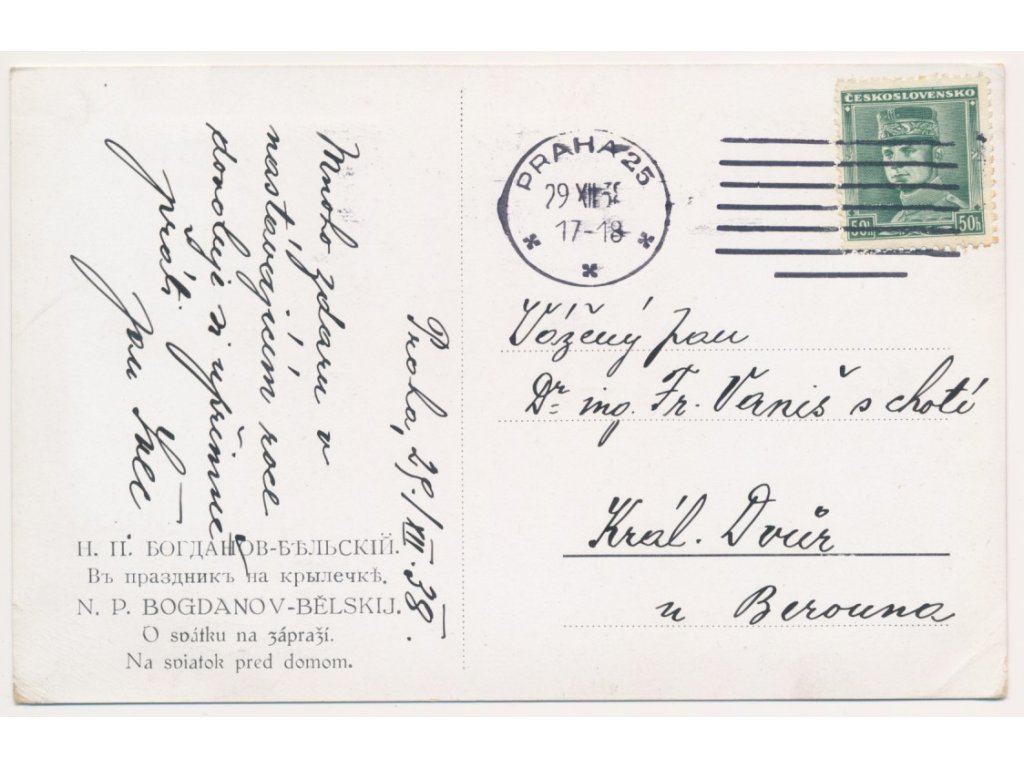 Praha, 29./XII.38.
Mnoho zdaru v
nastávajícím roce
donoluje si upřímně
přát.
Jan
ČESKOSLOVENSKO
50h 50h
PRAHA 25
29 XII 38
17-18
Vážený pan
Dr. ing. Fr. Vaniš s chotí
Král. Dvůr
u Berouna
Н. П. БОГДАНОВ-БѢЛЬСКІЙ.
Въ праздникъ на крылечкѣ.
N. P. BOGDANOV-BĚLSKIJ.
O svátku na zápraží.
Na sviatok pred domom.